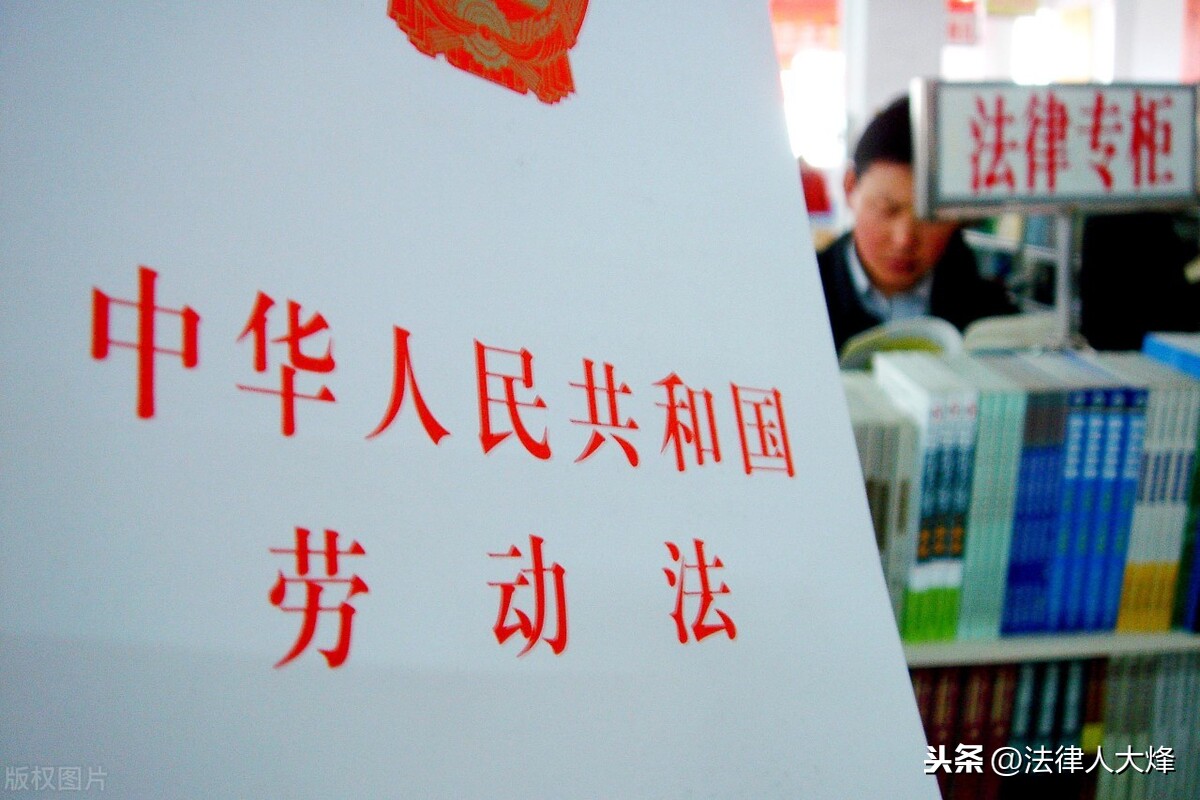 法律专柜
中华人民共和国
劳动法
版权图片
头条 @法律人大烽